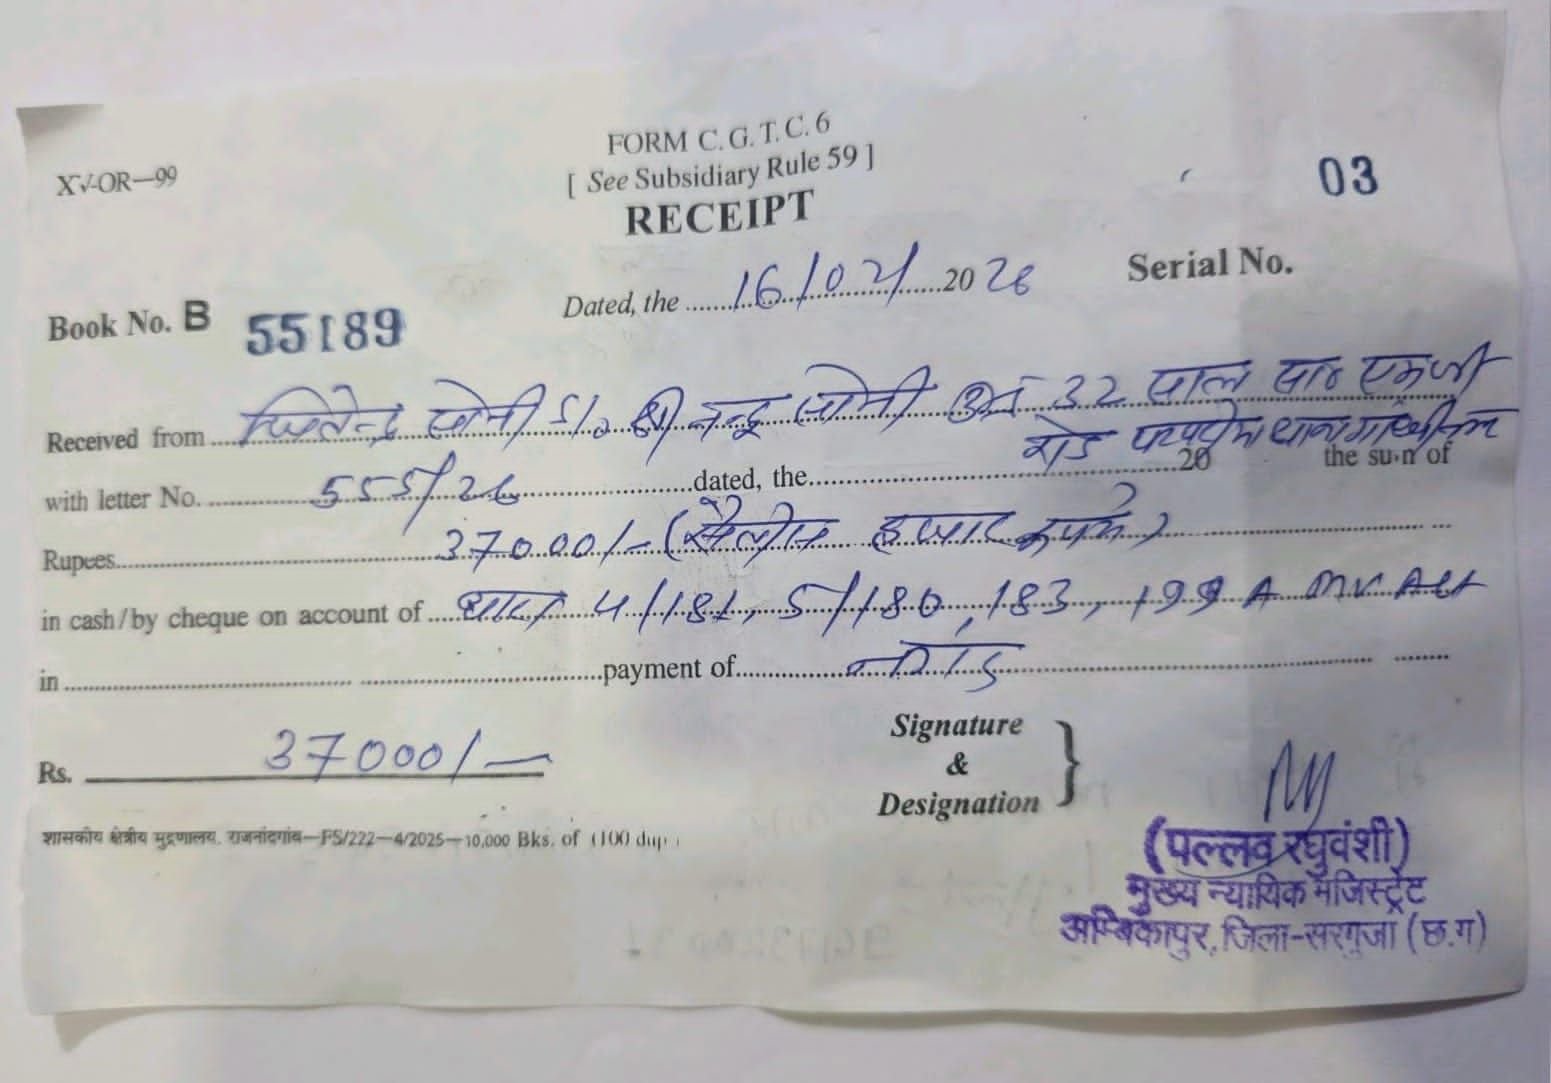 FORM C. G. T. C. 6
XV-OR—99
[ See Subsidiary Rule 59 ]
03
RECEIPT
Book No. B 55189
Dated, the 16/02/ 2026
Serial No.
Received from जितेन्द्र सोनी S/o श्री नन्दू सोनी उम्र 32 साल
रोड थाना
with letter No. 555/26 dated, the 20 the sum of
Rupees 37000/- (सैंतीस हजार रूपये)
in cash/by cheque on account of धारा 4/181, 5/180, 183, 199 A MV Act
in payment of
Rs. 37000/-
Signature
&
Designation
शासकीय क्षेत्रीय मुद्रणालय, राजनांदगांव—PS/222—4/2025—10,000 Bks. of (100 dup
(पल्लव रघुवंशी)
मुख्य न्यायिक मजिस्ट्रेट
अम्बिकापुर, जिला-सरगुजा (छ.ग)